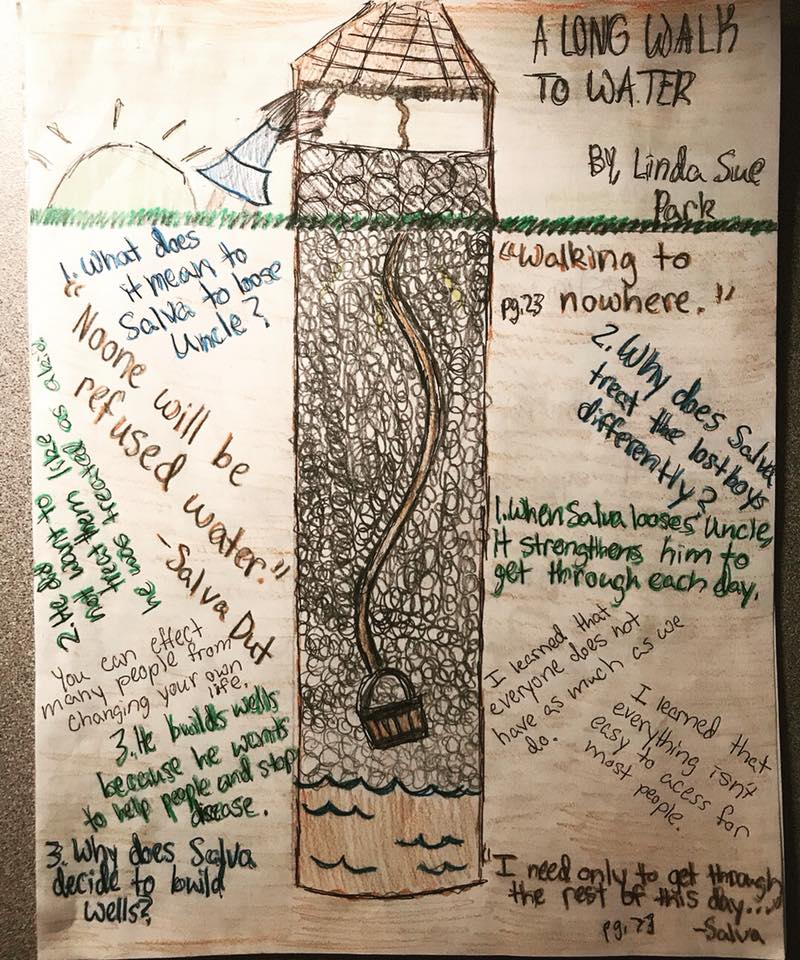 A LONG WALK
TO WATER
By, Linda Sue
Park
1. What does
it mean to
Salva to loose
Uncle?
"Noone will be
refused water."
-Salva Dut
2. He
not want to
treat them like
he was treated as a kid
You can effect
many people from
changing your own
life.
3. He builds wells
because he wants
to help people and stop
disease.
3. Why does Salva
decide to build
wells?
"Walking to
pg.23 nowhere."
2. Why does Salva
treat the lost boys
differently?
1. When Salva looses Uncle,
it strengthens him to
get through each day.
I learned that
everyone does not
have as much as we
do.
I learned that
everything isn't
easy to acess for
most people.
"I need only to get through
the rest of this day...."
pg. 73
-Salva